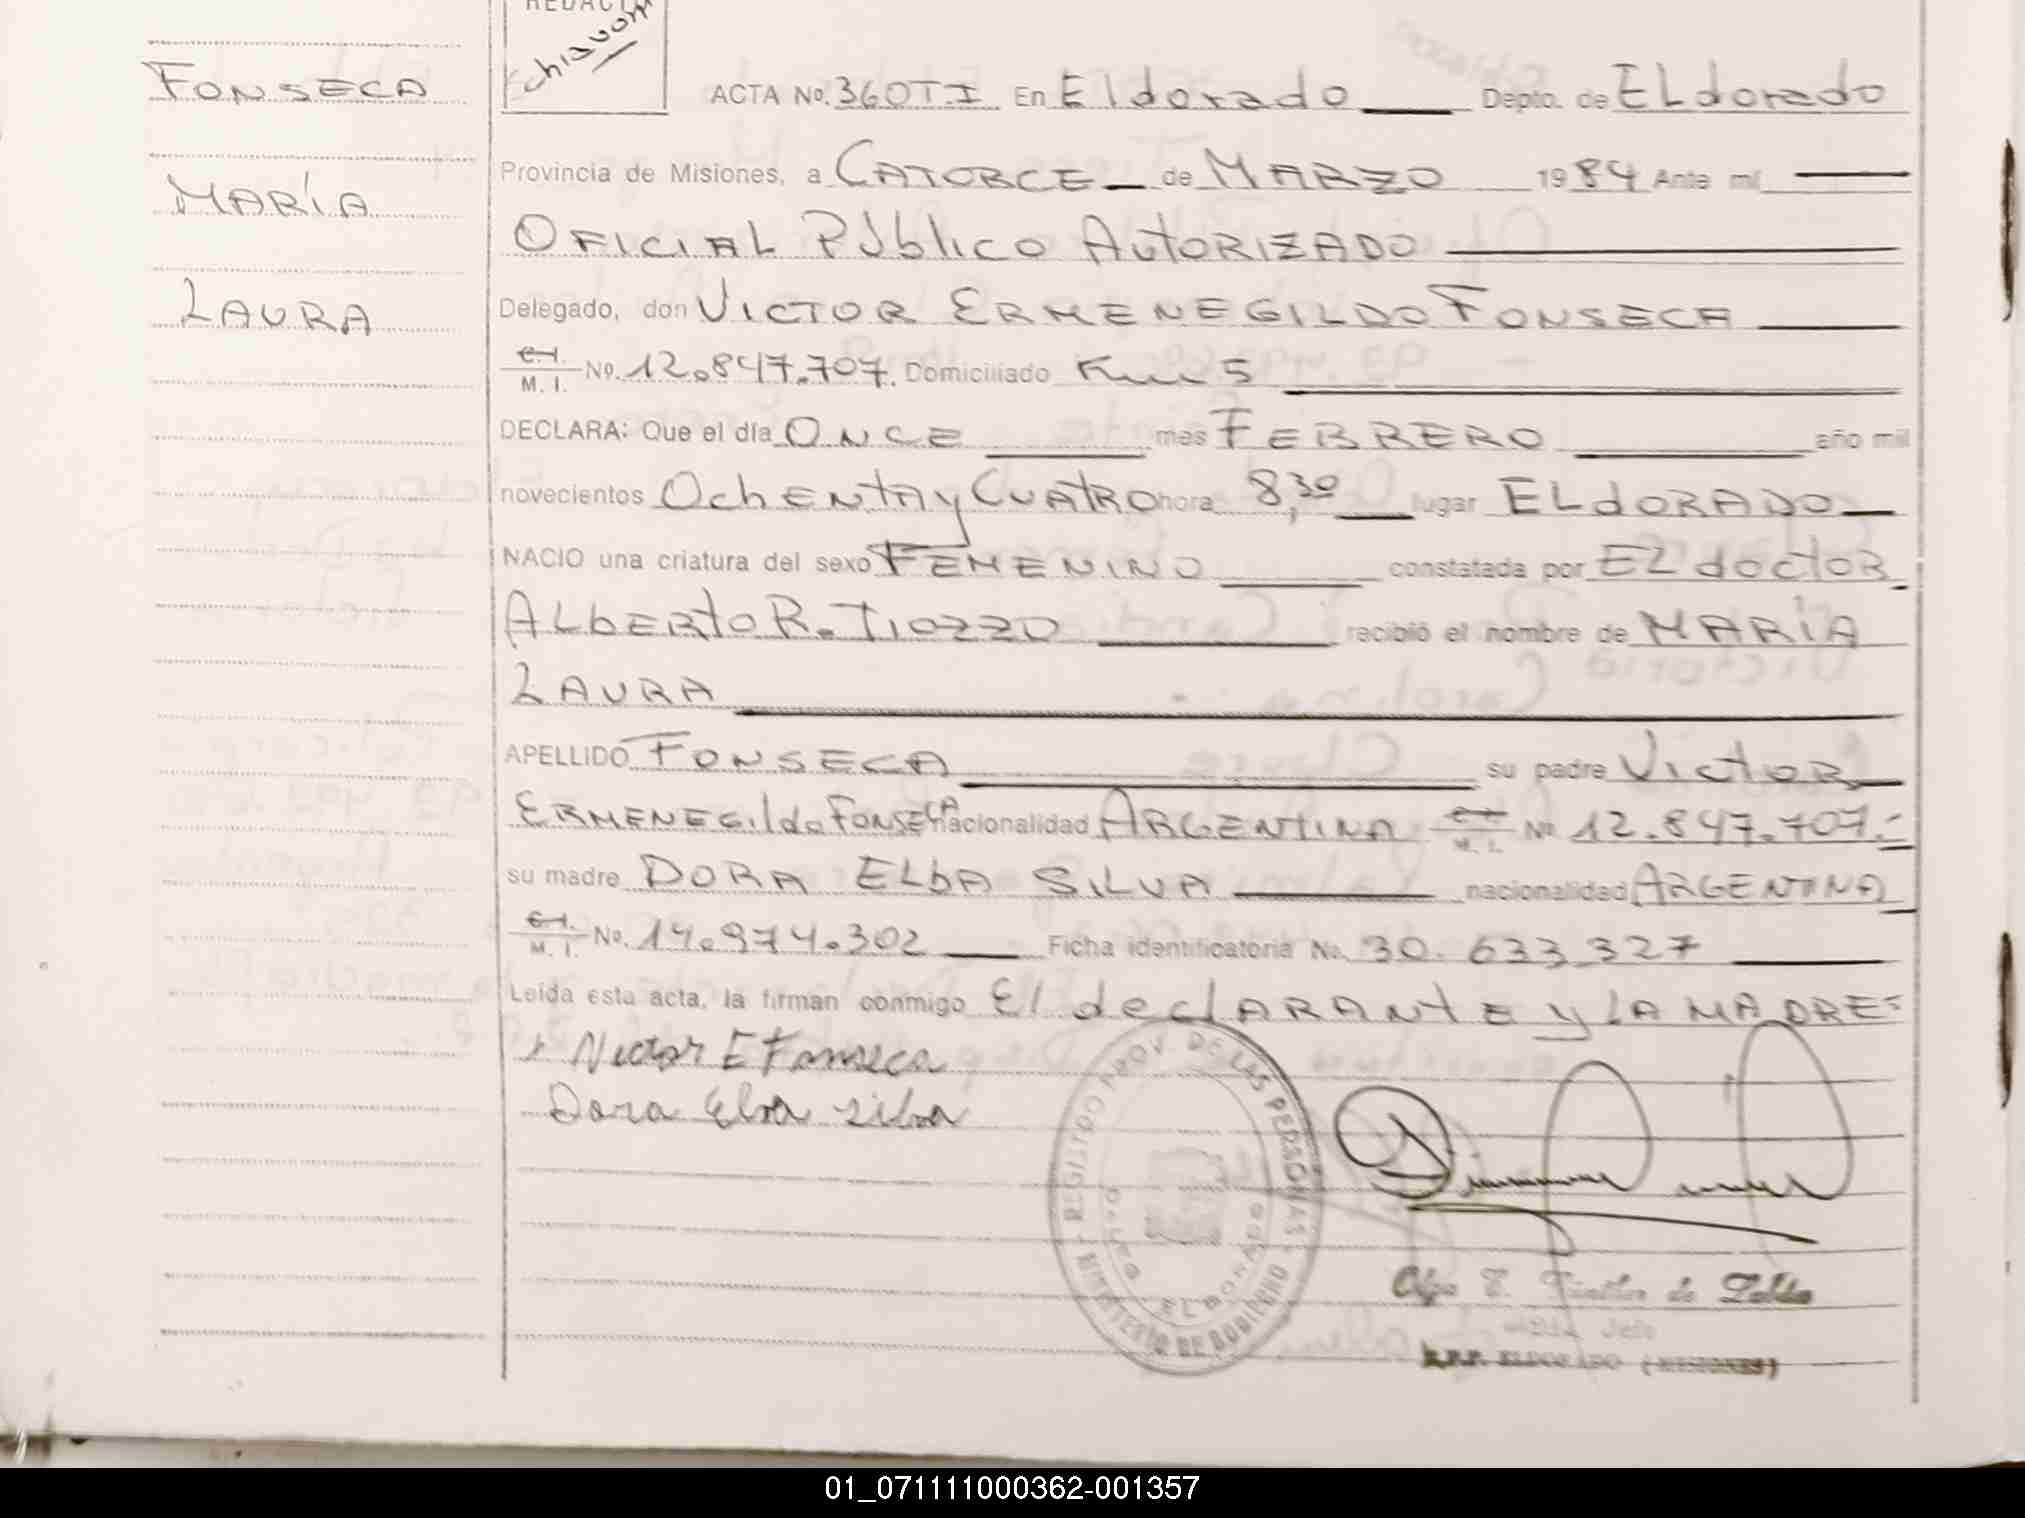 REDACT
Schiavoni
FONSECA
MARÍA
LAURA
ACTA No. 360TI En Eldorado Depto. de ELdorado
Provincia de Misiones, a CATORCE de MARZO 1984 Ante mí
OFICIAL PÚblico AUTORIZADO
Delegado, don VICTOR ERMENEGILDO FONSECA
C.I. M. I. No. 12.847.707. Domiciliado Km 5
DECLARA: Que el día ONCE mes FEBRERO año mil
novecientos OchENTA y CUATRO hora 8,30 lugar ELdORADO
NACIO una criatura del sexo FEMENINO constatada por EL doctOR
ALbERTO R. TIOZZO recibió el nombre de MARÍA
LAURA
APELLIDO FONSECA su padre VICTOR
ERMENEGILdo FONSECA nacionalidad ARGENTINA C.I. M. I. No 12.847.707.-
su madre DORA ELbA SILVA nacionalidad ARGENTINA
C.I. M. I. No. 14.974.302 Ficha identificatoria No. 30.633.327
Leída esta acta, la firman conmigo El declARANtE y LA MADRE=
Victor E Fonseca
Dora Elva Silva
REGISTRO PROV. DE LAS PERSONAS
MINISTERIO DE GOBIERNO
ELDORADO
Olga de
Jefe
R.P.P. ELDORADO (MISIONES)
01_071111000362-001357